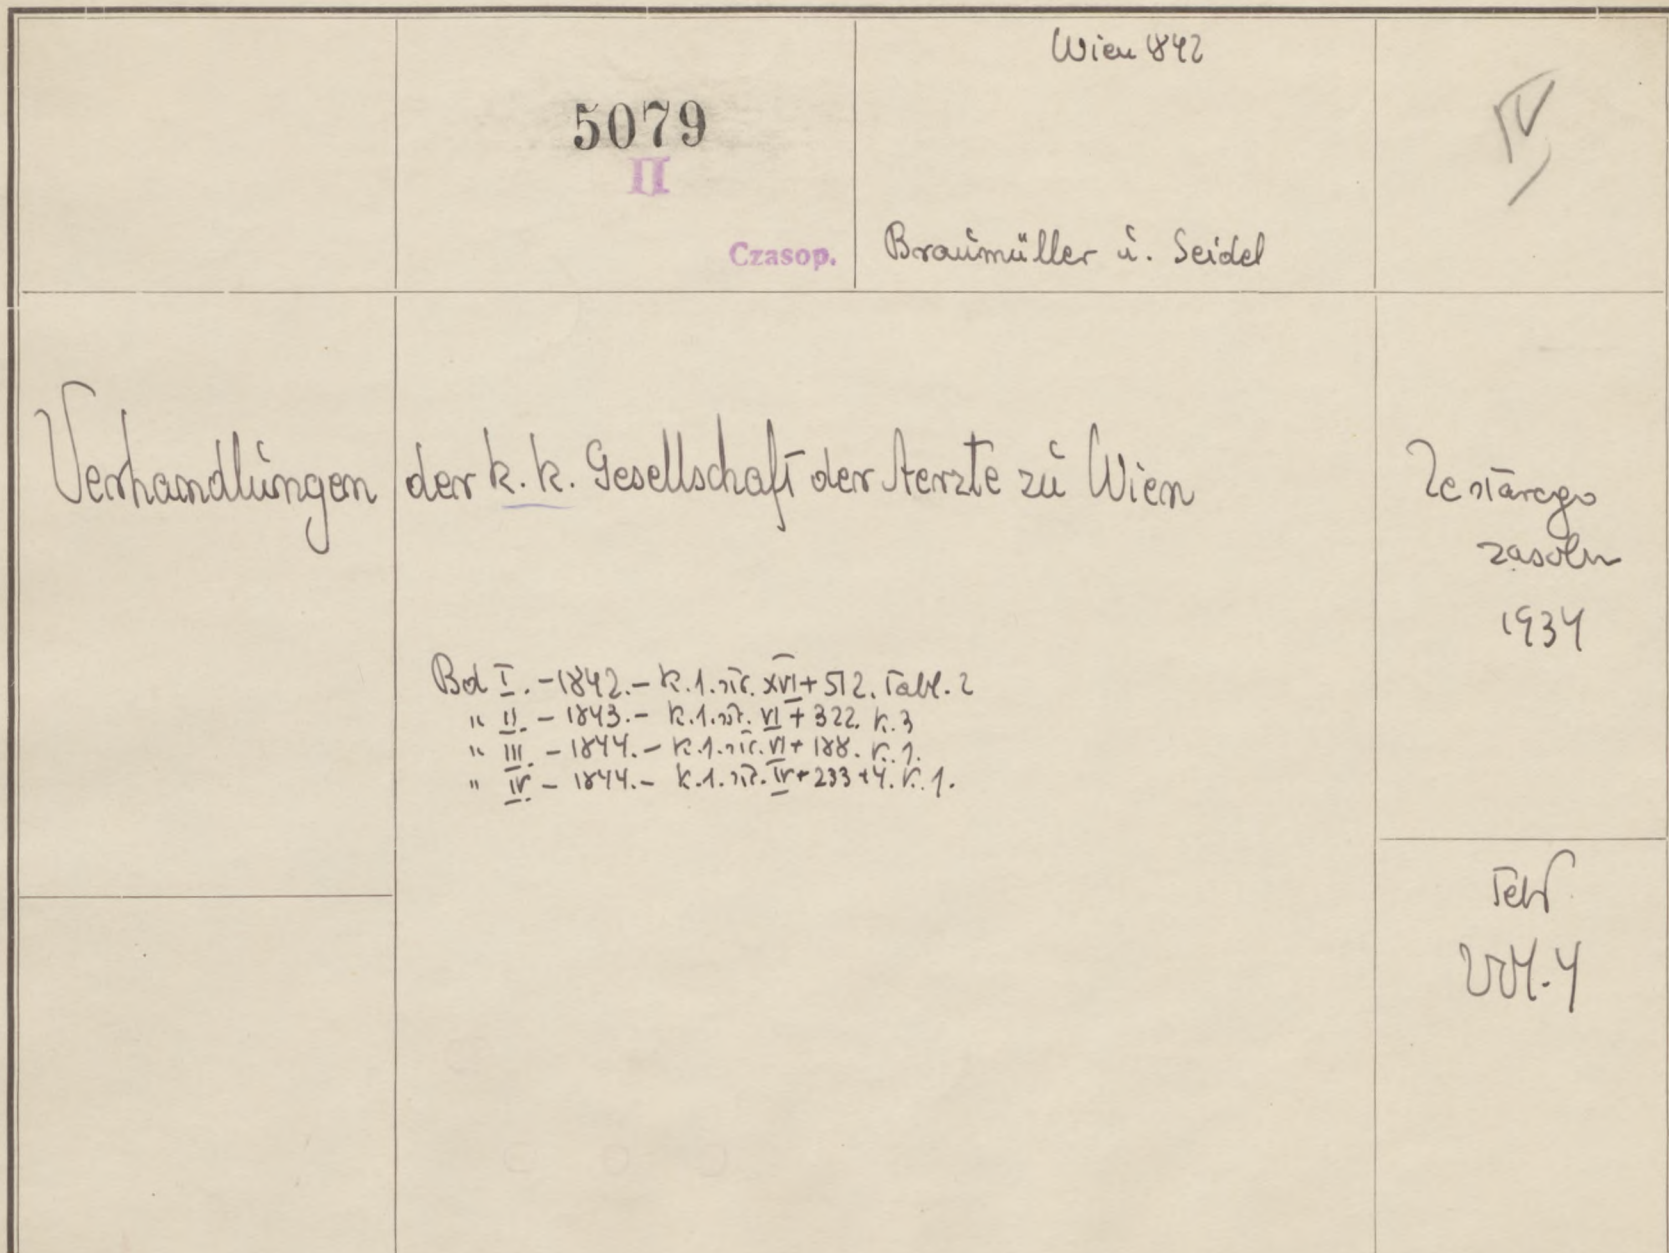 Wien 842
5079
II
Czasop.
Braumüller u. Seidel
IV
Verhandlungen der k. k. Gesellschaft der Aerzte zu Wien
Ze starego
zasobu
1934
Bd I. - 1842. - K. 1. str. XVI + 512. Tabl. 2
" II. - 1843. - K. 1. str. VI + 322. K. 3
" III. - 1844. - K. 1. str. VI + 188. K. 1.
" IV. - 1844. - K. 1. str. IV + 233 + 4. K. 1.